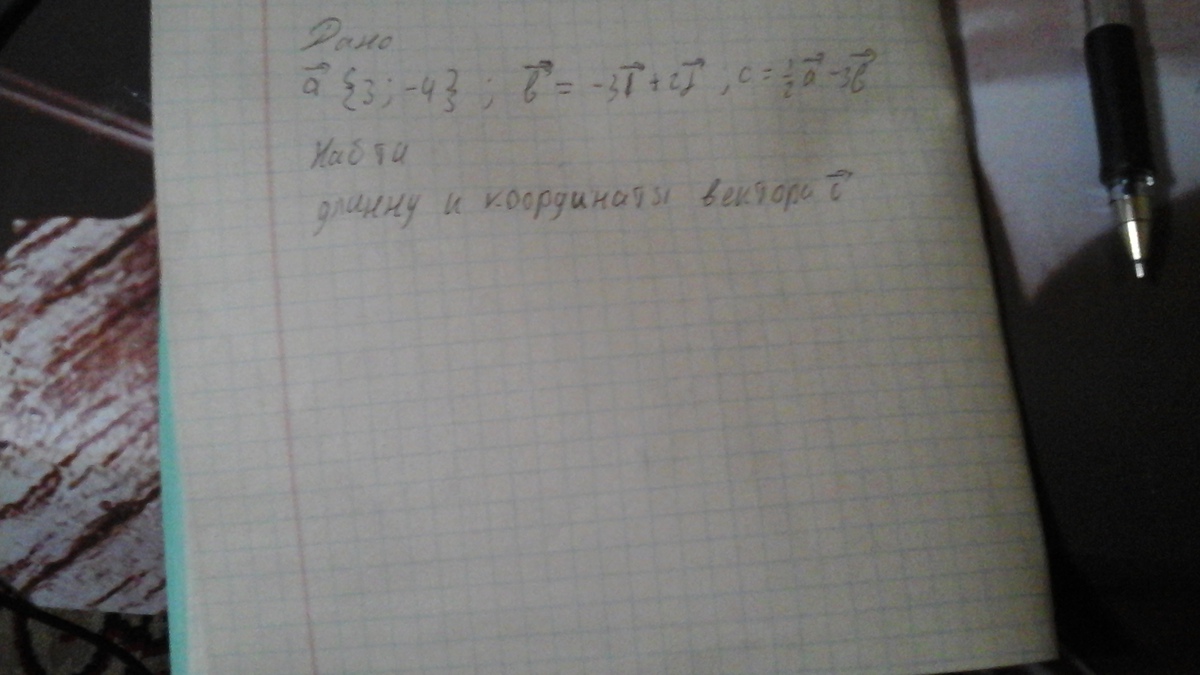 Дано
a⃗ {3; -4} ; b⃗ = -3i⃗ + 2j⃗ , c = ½a⃗ - 3b⃗
Найти
длинну и координаты вектора c⃗